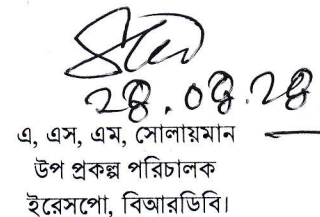 ২৪.০৪.২৪
এ, এস, এম, সোলায়মান
উপ প্রকল্প পরিচালক
ইরেসপো, বিআরডিবি।